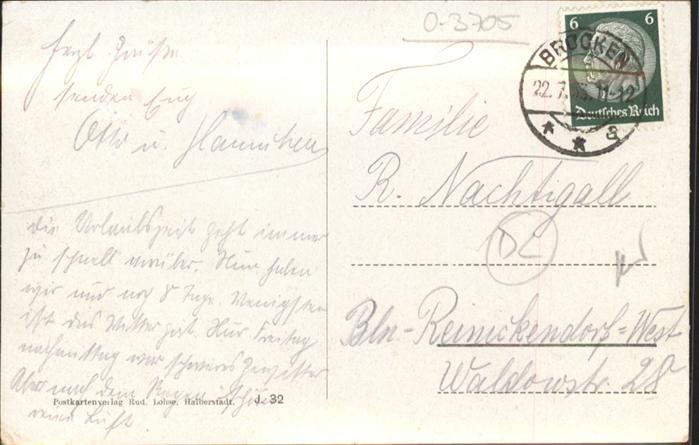 0-3705
Herzl. Grüße
senden Euch
Otto u. Hannchen
die Urlaubszeit geht immer
zu schnell vorüber. Nun haben
wir nur noch 8 Tage. Wenigstens
ist das Wetter gut. Nur Freitag
nachmittag war schweres Gewitter
Aber nach dem Regen schöne
reine Luft.
Postkartenverlag Rud. Lohse, Halberstadt. J. 32
6 6
Deutsches Reich
BROCKEN
22.7. 11-12
a
Familie
R. Nachtigall
Bln-Reinickendorf=West
Waldowstr. 28